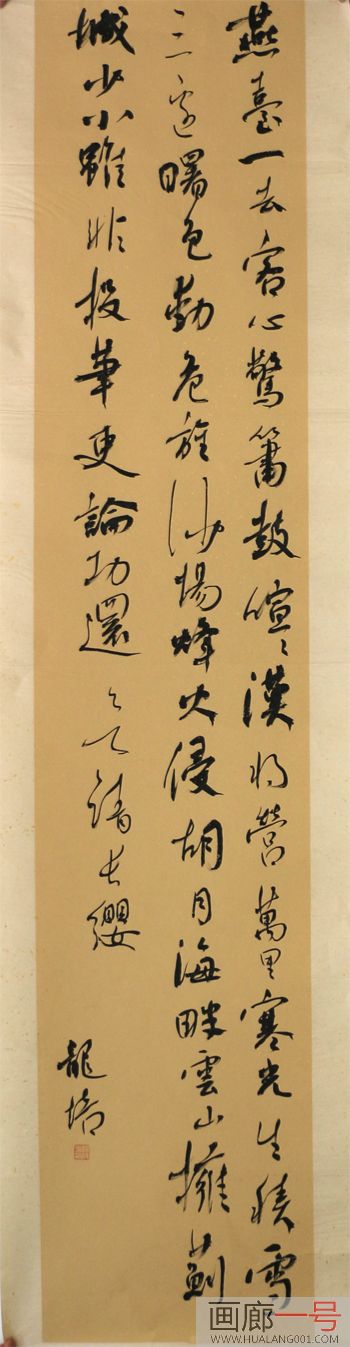 燕臺一去客心驚簫鼓喧々漢將營萬里寒光生積雪
三邊曙色動危旌沙場烽火侵胡月海畔雲山擁薊
城少小雖非投筆吏論功還欲請長纓
龍培
画廊一号
WWW.HUALANG001.COM